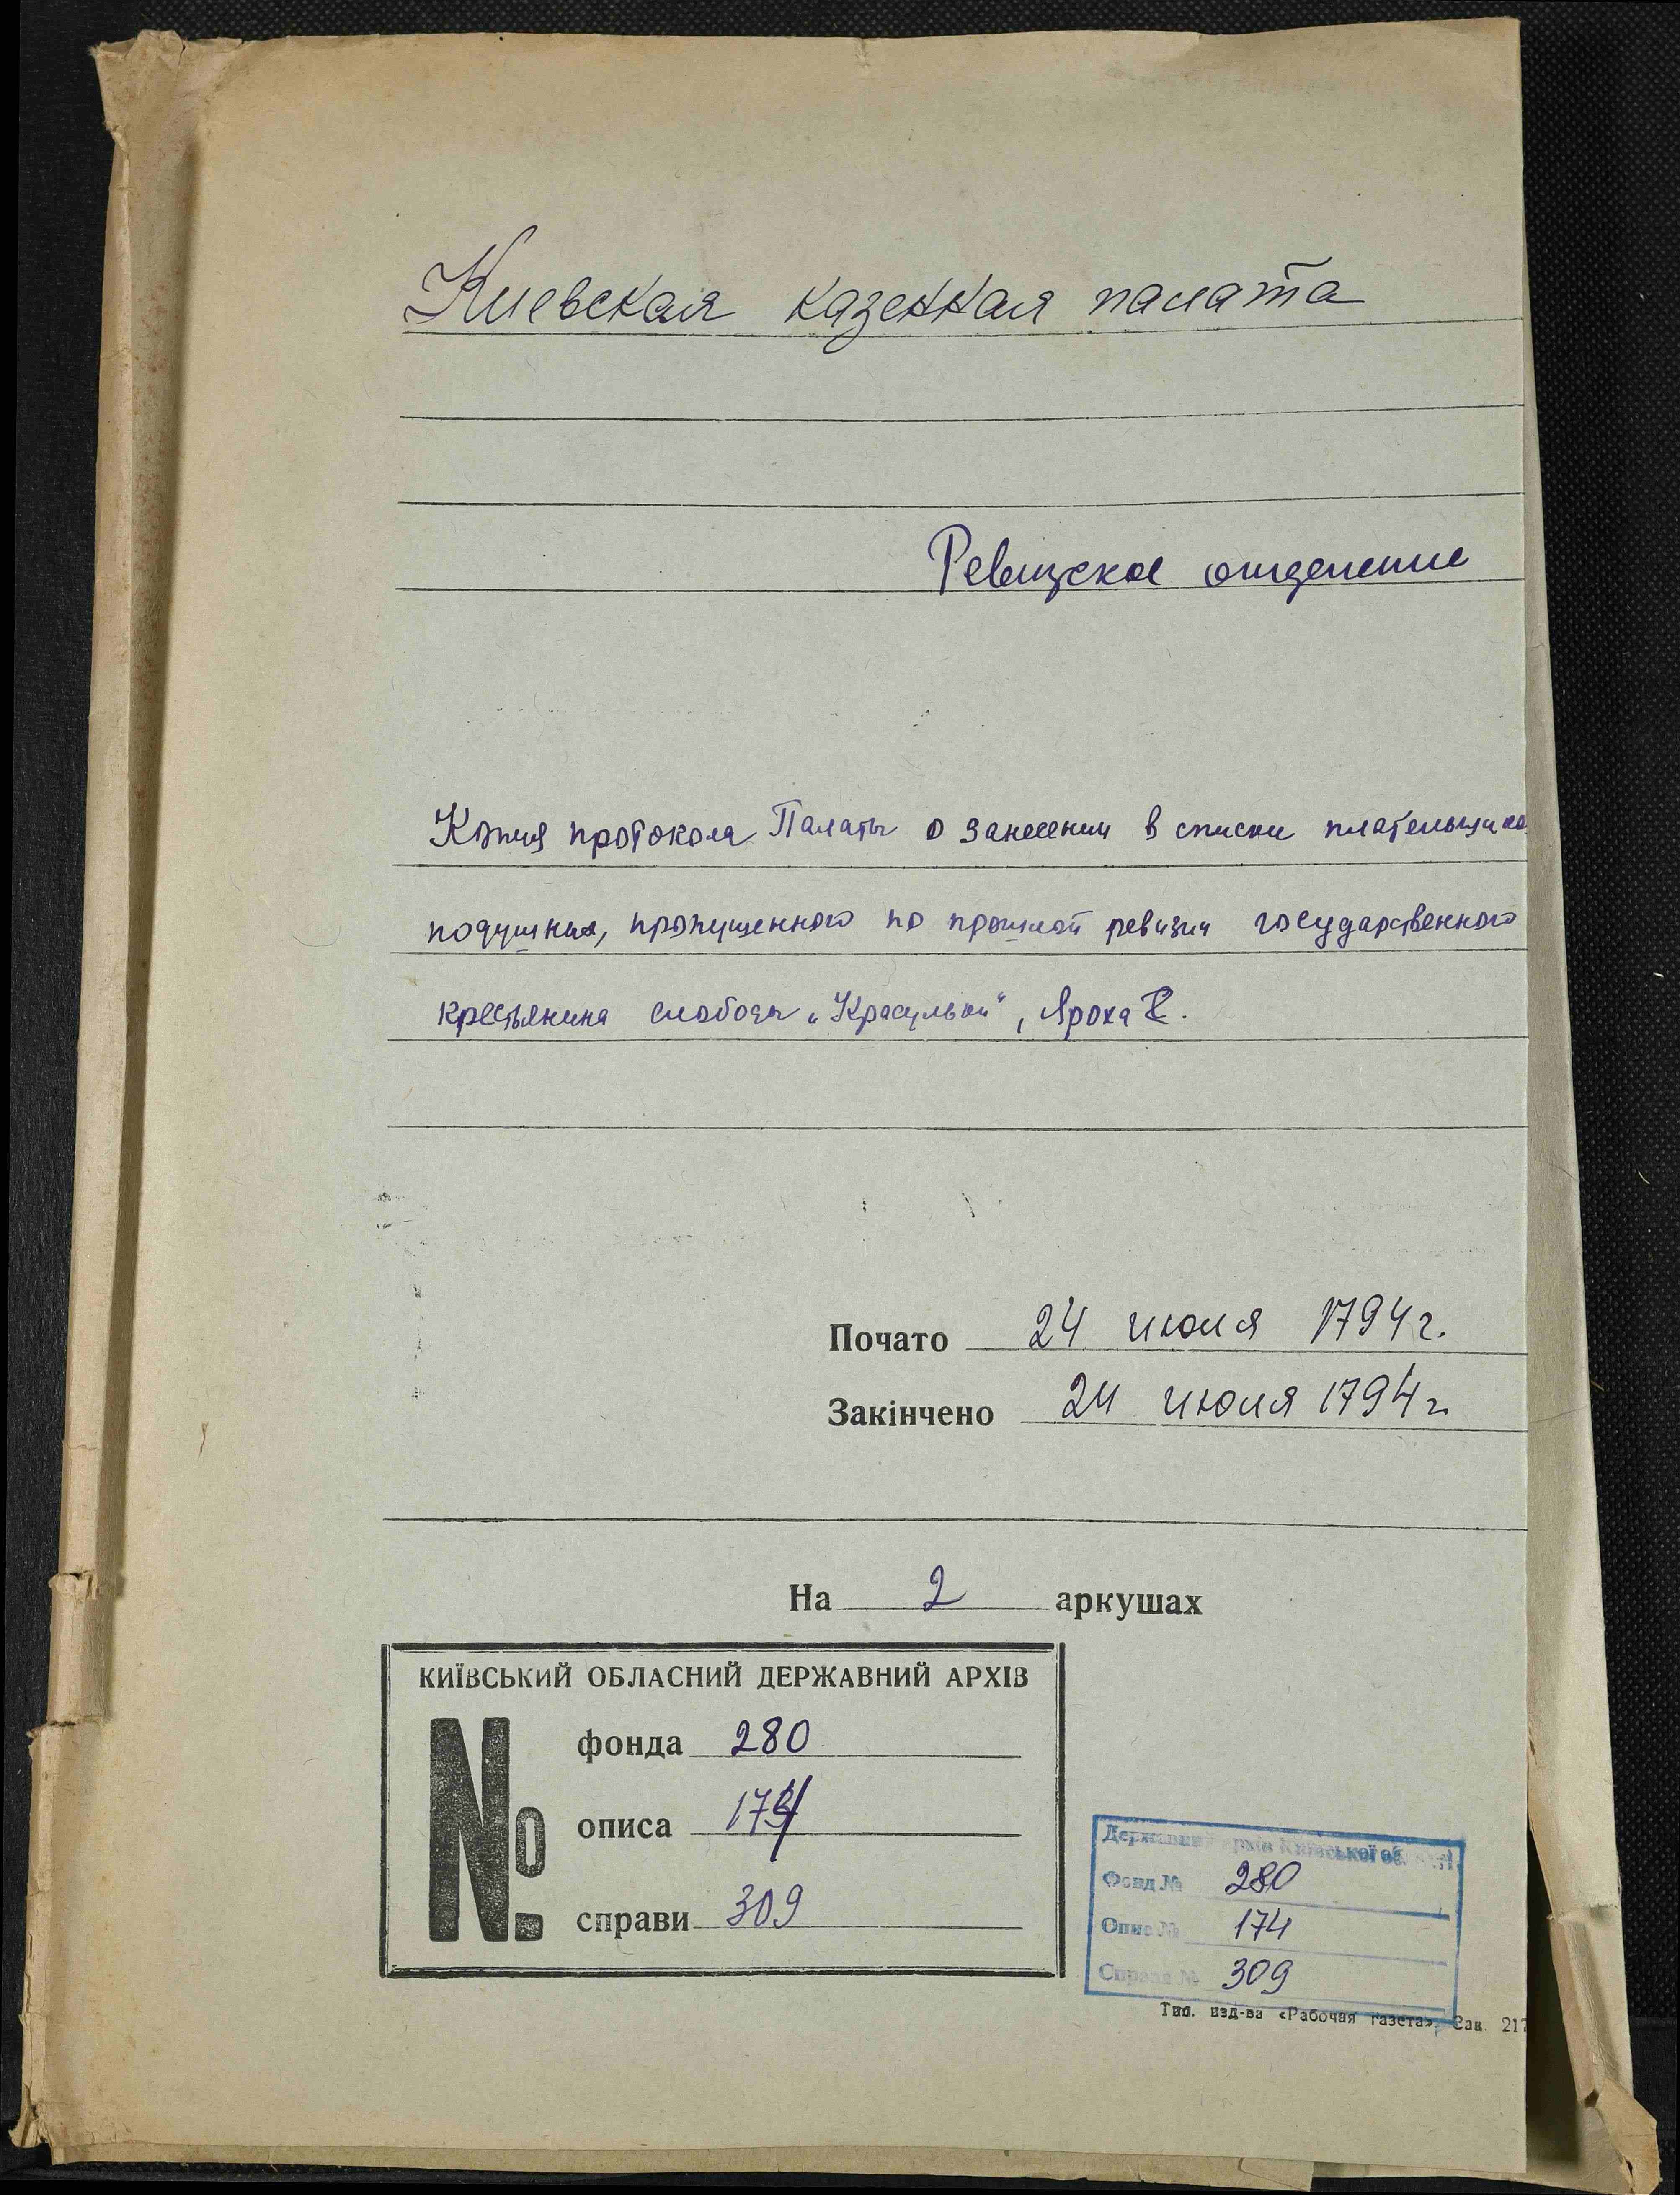 Киевская казенная палата
Ревизское отделение
Копия протокола Палаты о занесении в списки плательщиков
подушных, пропущенного по прошлой ревизии государственного
крестьянина слободы „Красульки“, Яроха С.
Почато 24 июля 1794 г.
Закінчено 24 июля 1794 г.
На 2 аркушах
КИЇВСЬКИЙ ОБЛАСНИЙ ДЕРЖАВНИЙ АРХІВ
№
фонда 280
описа 174
справи 309
Державний архів Київської області
Фонд № 280
Опис № 174
Справа № 309
Тип. изд-ва «Рабочая газета». Зак. 217